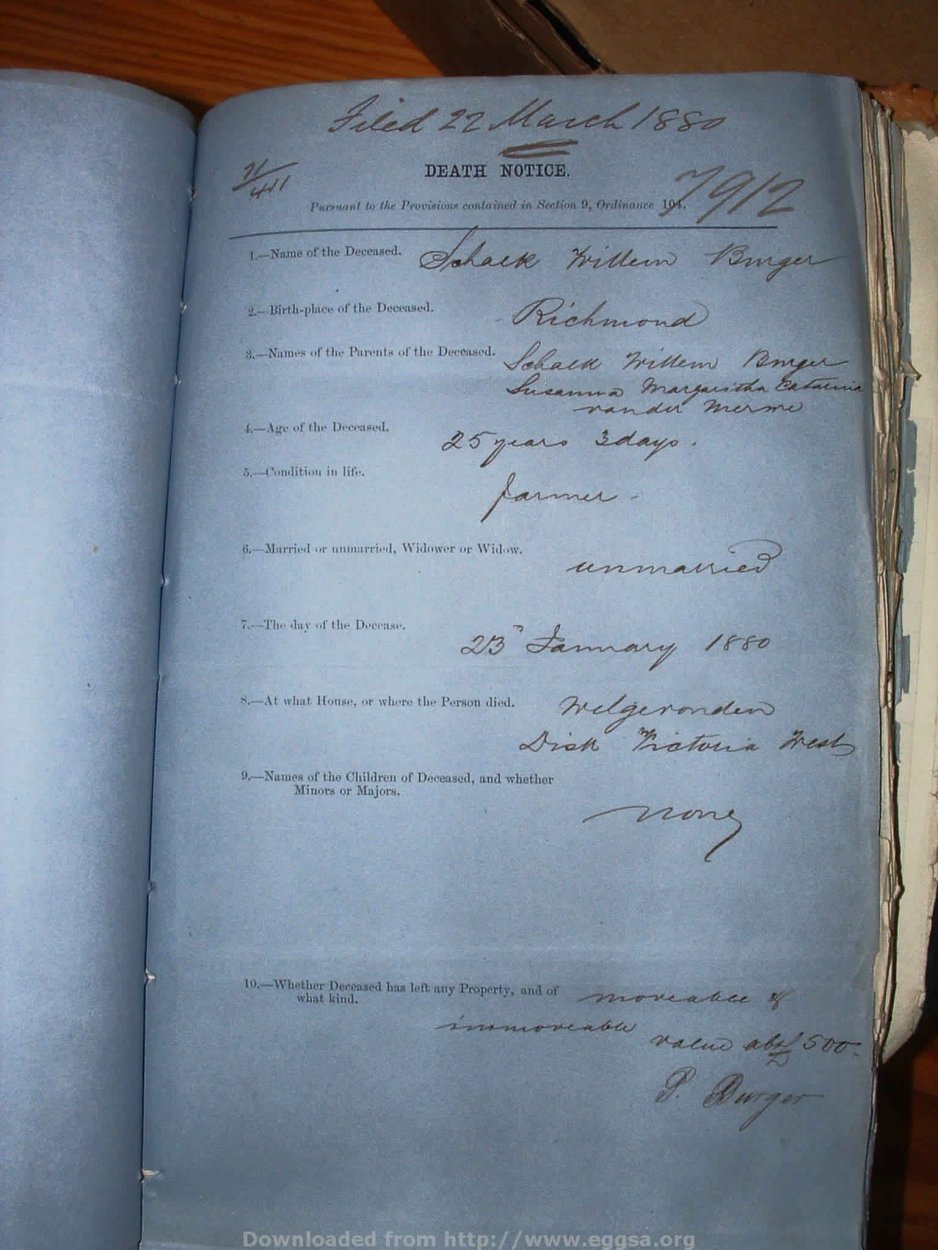 Filed 22 March 1880
DEATH NOTICE.
7912
Pursuant to the Provisions contained in Section 9, Ordinance 104.
1.—Name of the Deceased. Schalk Willem Burger
2.—Birth-place of the Deceased. Richmond
3.—Names of the Parents of the Deceased. Schalk Willem Burger
Susanna Margaritha Catarina
van der Merwe
4.—Age of the Deceased. 25 years 3 days.
5.—Condition in life. farmer
6.—Married or unmarried, Widower or Widow. unmarried
7.—The day of the Decease. 23 January 1880
8.—At what House, or where the Person died. Wilgevonden
Dist Victoria West
9.—Names of the Children of Deceased, and whether
Minors or Majors. none
10.—Whether Deceased has left any Property, and of
what kind. moveable &
immoveable
value abt £500
P. Burger
Downloaded from http://www.eggsa.org